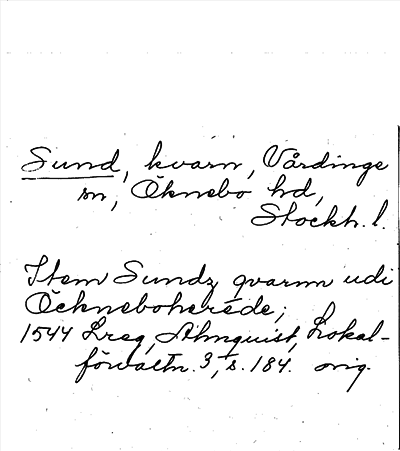 Sund, kvarn, Vårdinge
sn, Öknebo hd,
Stockh. l.
Item Sundz qvarnn udi
Öckneboherede;
1544 Lreg, Almquist, Lokal-
förvaltn. 3, s. 184. orig.